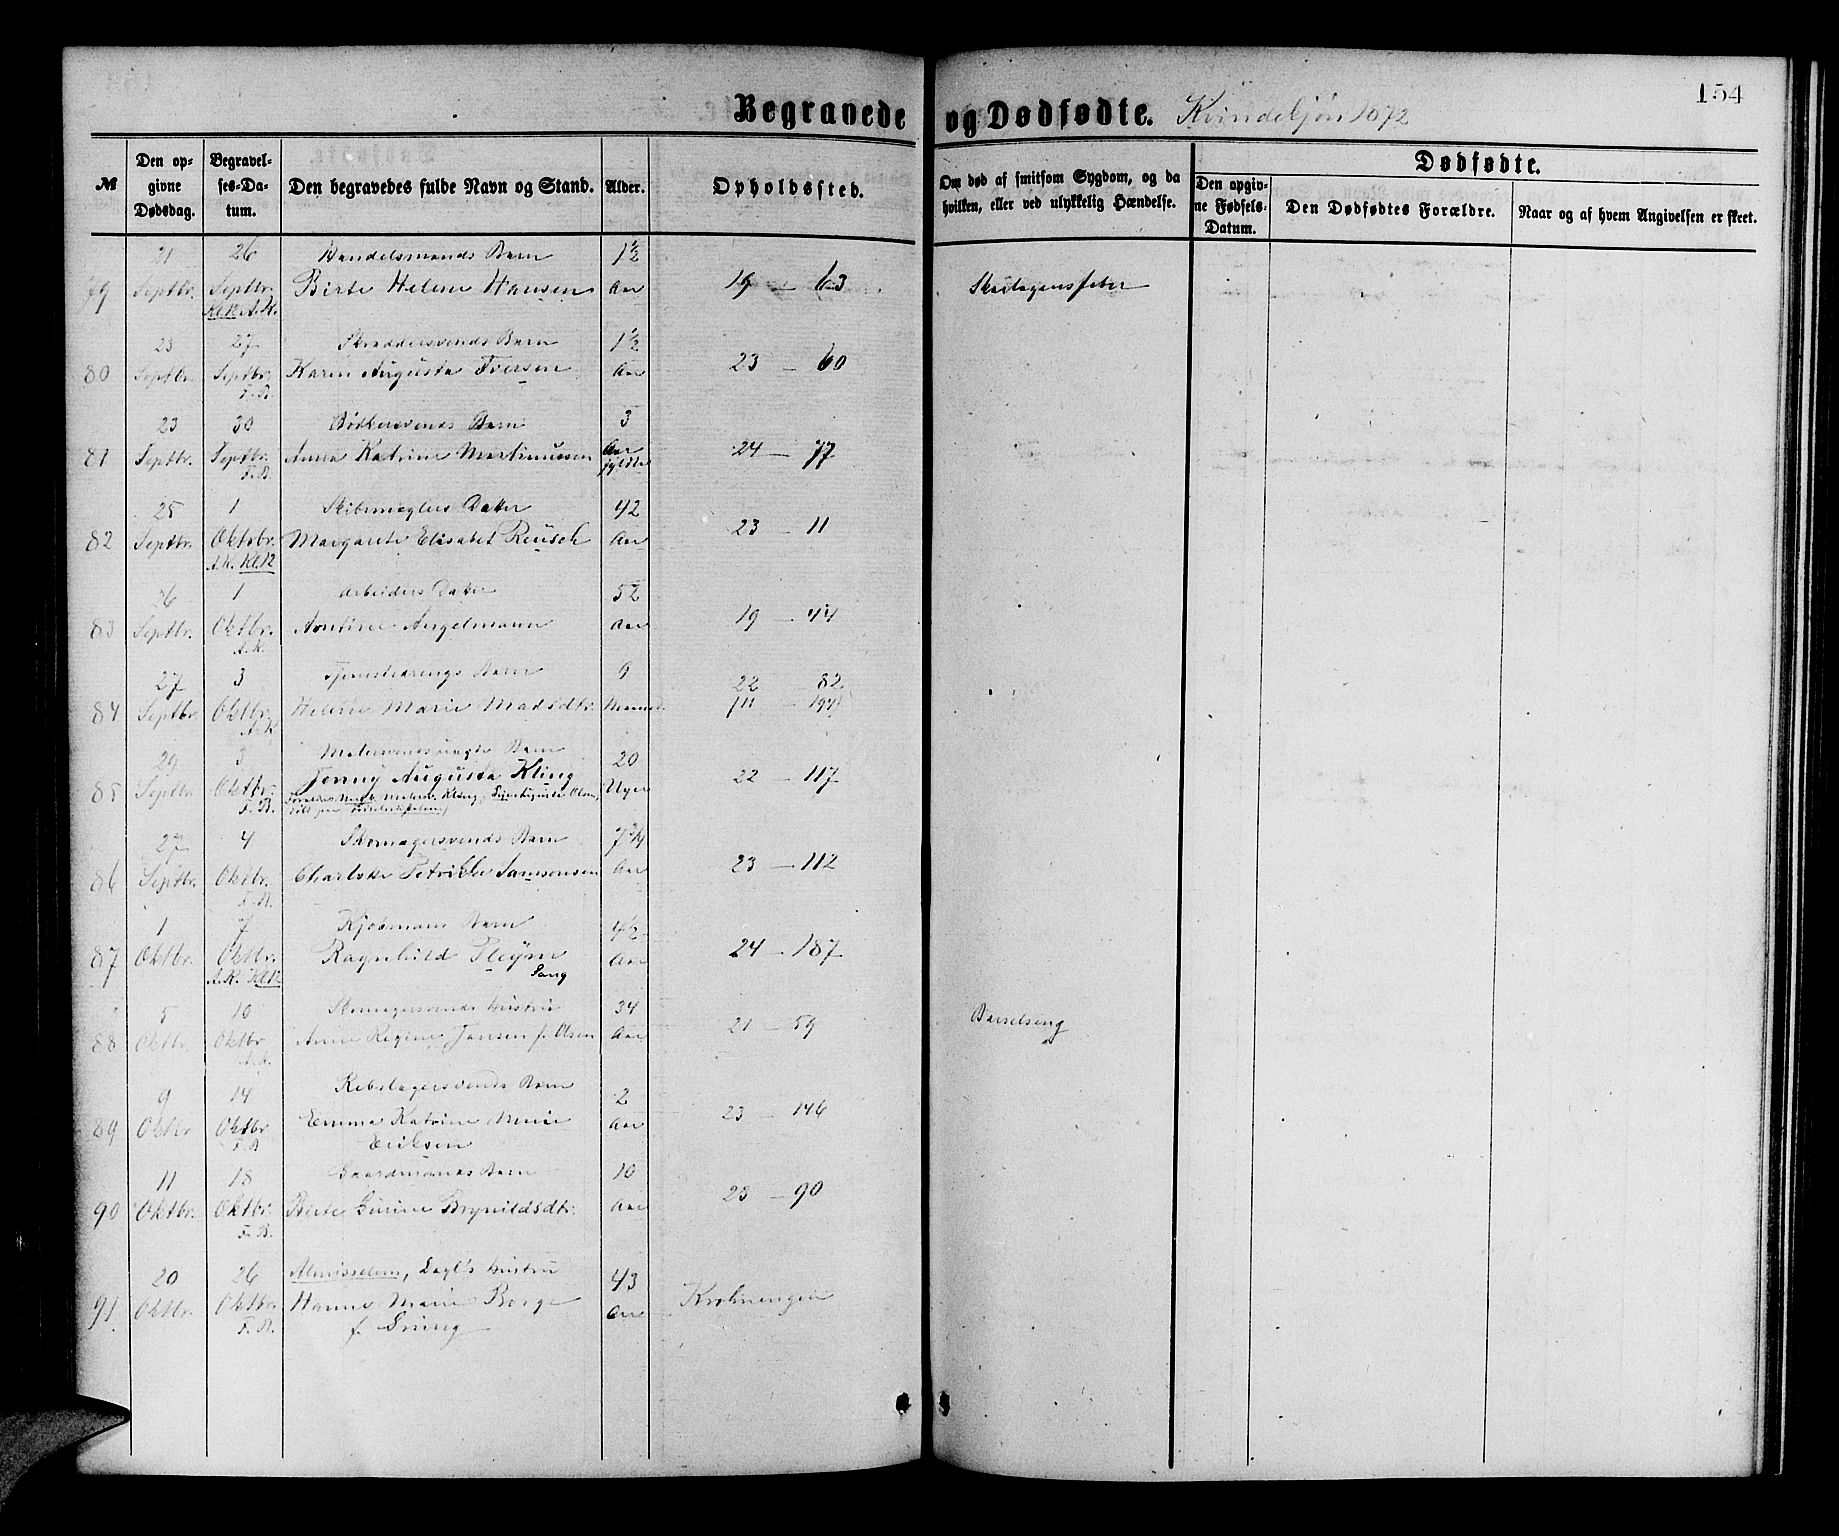 154
Begravede og Dødfødte. Kvindekjøn 1872
№ | Den opgivne Dødsdag. | Begravelses-Datum. | Den begravedes fulde Navn og Stand. | Alder. | Opholdssted. | Om død af smitsom Sygdom, og da hvilken, eller ved ulykkelig Hændelse. | Dødfødte.
Den opgivne Fødsels-Datum. | Den Dødfødtes Forældre. | Naar og af hvem Angivelsen er skeet.
21 | 26 | Handelsmands Barn | 1½
79 | Septbr. | Septbr. | Birte Helene Hansen | Aar | 19 — 63 | Skarlagensfeber
Kl.K A.K.
23 | 27 | Skræddersvends Barn | 1½
80 | Septbr. | Septbr. | Karen Augusta Iversen | Aar | 23 — 60
F.B.
23 | 30 | Bødkersvends Barn | 3
81 | Septbr. | Septbr. | Anna Katrine Martinussen | Aar fyldte | 24 — 77
F.B.
25 | 1 | Skibsmæglers Datter | 42
82 | Septbr. | Oktobr. | Margarete Elisabet Reusch | Aar | 23 — 11
A.K. Kl.K
26 | 1 | Arbeiders Datter | 52
83 | Septbr. | Oktbr. | Angelmann | Aar | 19 — 44
A.K.
27 | 3 | Barn | 9 | 22 — 82
84 | Septbr. | Oktbr. | Helene Marie Madsdtr. | Maaned. | 111 — 197
A.K.
29 | 3 | Barn | 20
85 | Septbr. | Oktbr. | Jenny Augusta Kling | Uger | 22 — 117
F.B.
27 | 4 | Skomagersvends Barn | 7¾
86 | Septbr. | Oktbr. | Charlotte Petrikke Samsonsen | Aar | 23 — 112
F.B.
1 | 7 | Kjøbmans Barn | 4½
87 | Oktbr. | Oktbr. | Ragnhild Pleym | Aar | 24 — 187
A.K. Kl.K. | Sang
5 | 10 | Skomagersvends Hustru | 34
88 | Oktbr. | Oktbr. | Anne Regine Jansen f. Olsen | Aar | 21 — 59 | Barselseng
A.K.
9 | 14 | Rebslagersvends Barn | 2
89 | Oktbr. | Oktbr. | Emma Katrine Marie | Aar | 23 — 146
F.B | Eriksen
11 | 18 | Gaardmands Barn | 10
90 | Oktbr. | Oktbr. | Birte Gurine Brynildsdtr. | Aar | 23 — 90
F.B.
20 | 26 | Almisselem, Dagl's Hustru | 43
91. | Oktbr. | Oktbr. | Hanne Marie Borge | Aar | Krohnengen
F.B. | f.